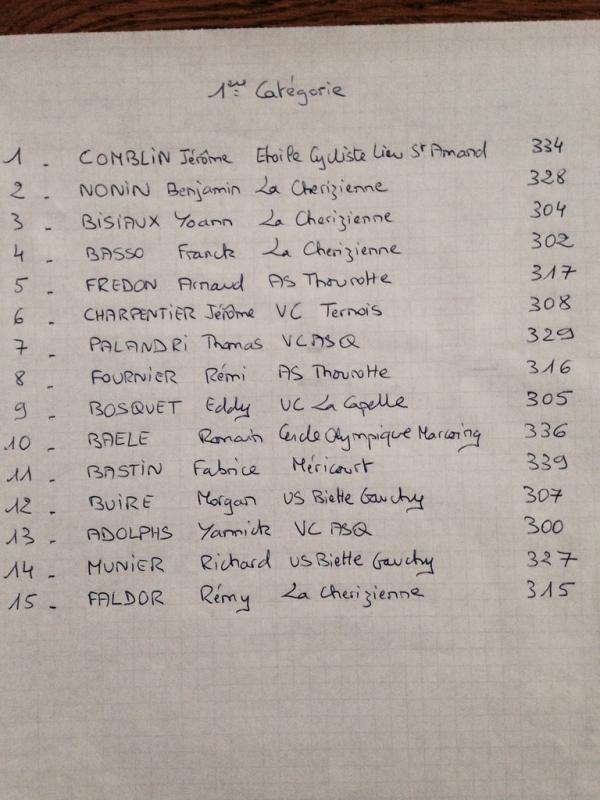 1ère Catégorie
1 - COMBLIN Jérôme Etoile Cycliste Lieu St Amand 334
2 - NONIN Benjamin La Cherizienne 328
3 - BISIAUX Yoann La Cherizienne 304
4 - BASSO Franck La Cherizienne 302
5 - FREDON Arnaud AS Thourotte 317
6 - CHARPENTIER Jérôme VC Ternois 308
7 - PALANDRI Thomas VCASQ 329
8 - FOURNIER Rémi AS Thourotte 316
9 - BOSQUET Eddy VC La Capelle 305
10 - BAELE Romain Cercle Olympique Marcoing 336
11 - BASTIN Fabrice Méricourt 339
12 - BUIRE Morgan US Biette Gauchy 307
13 - ADOLPHS Yannick VC ASQ 300
14 - MUNIER Richard US Biette Gauchy 327
15 - FALDOR Rémy La Cherizienne 315